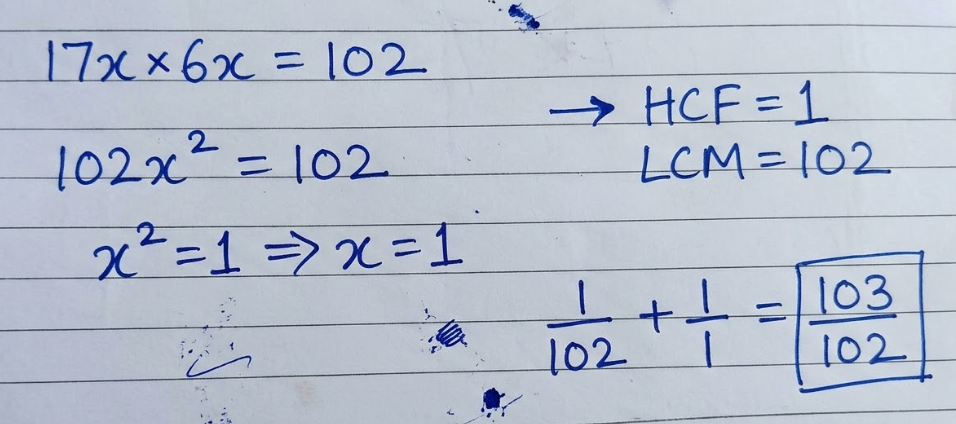 17x × 6x = 102
102x² = 102
x² = 1 ⇒ x = 1
→ HCF = 1
LCM = 102
1/102 + 1/1 = 103/102